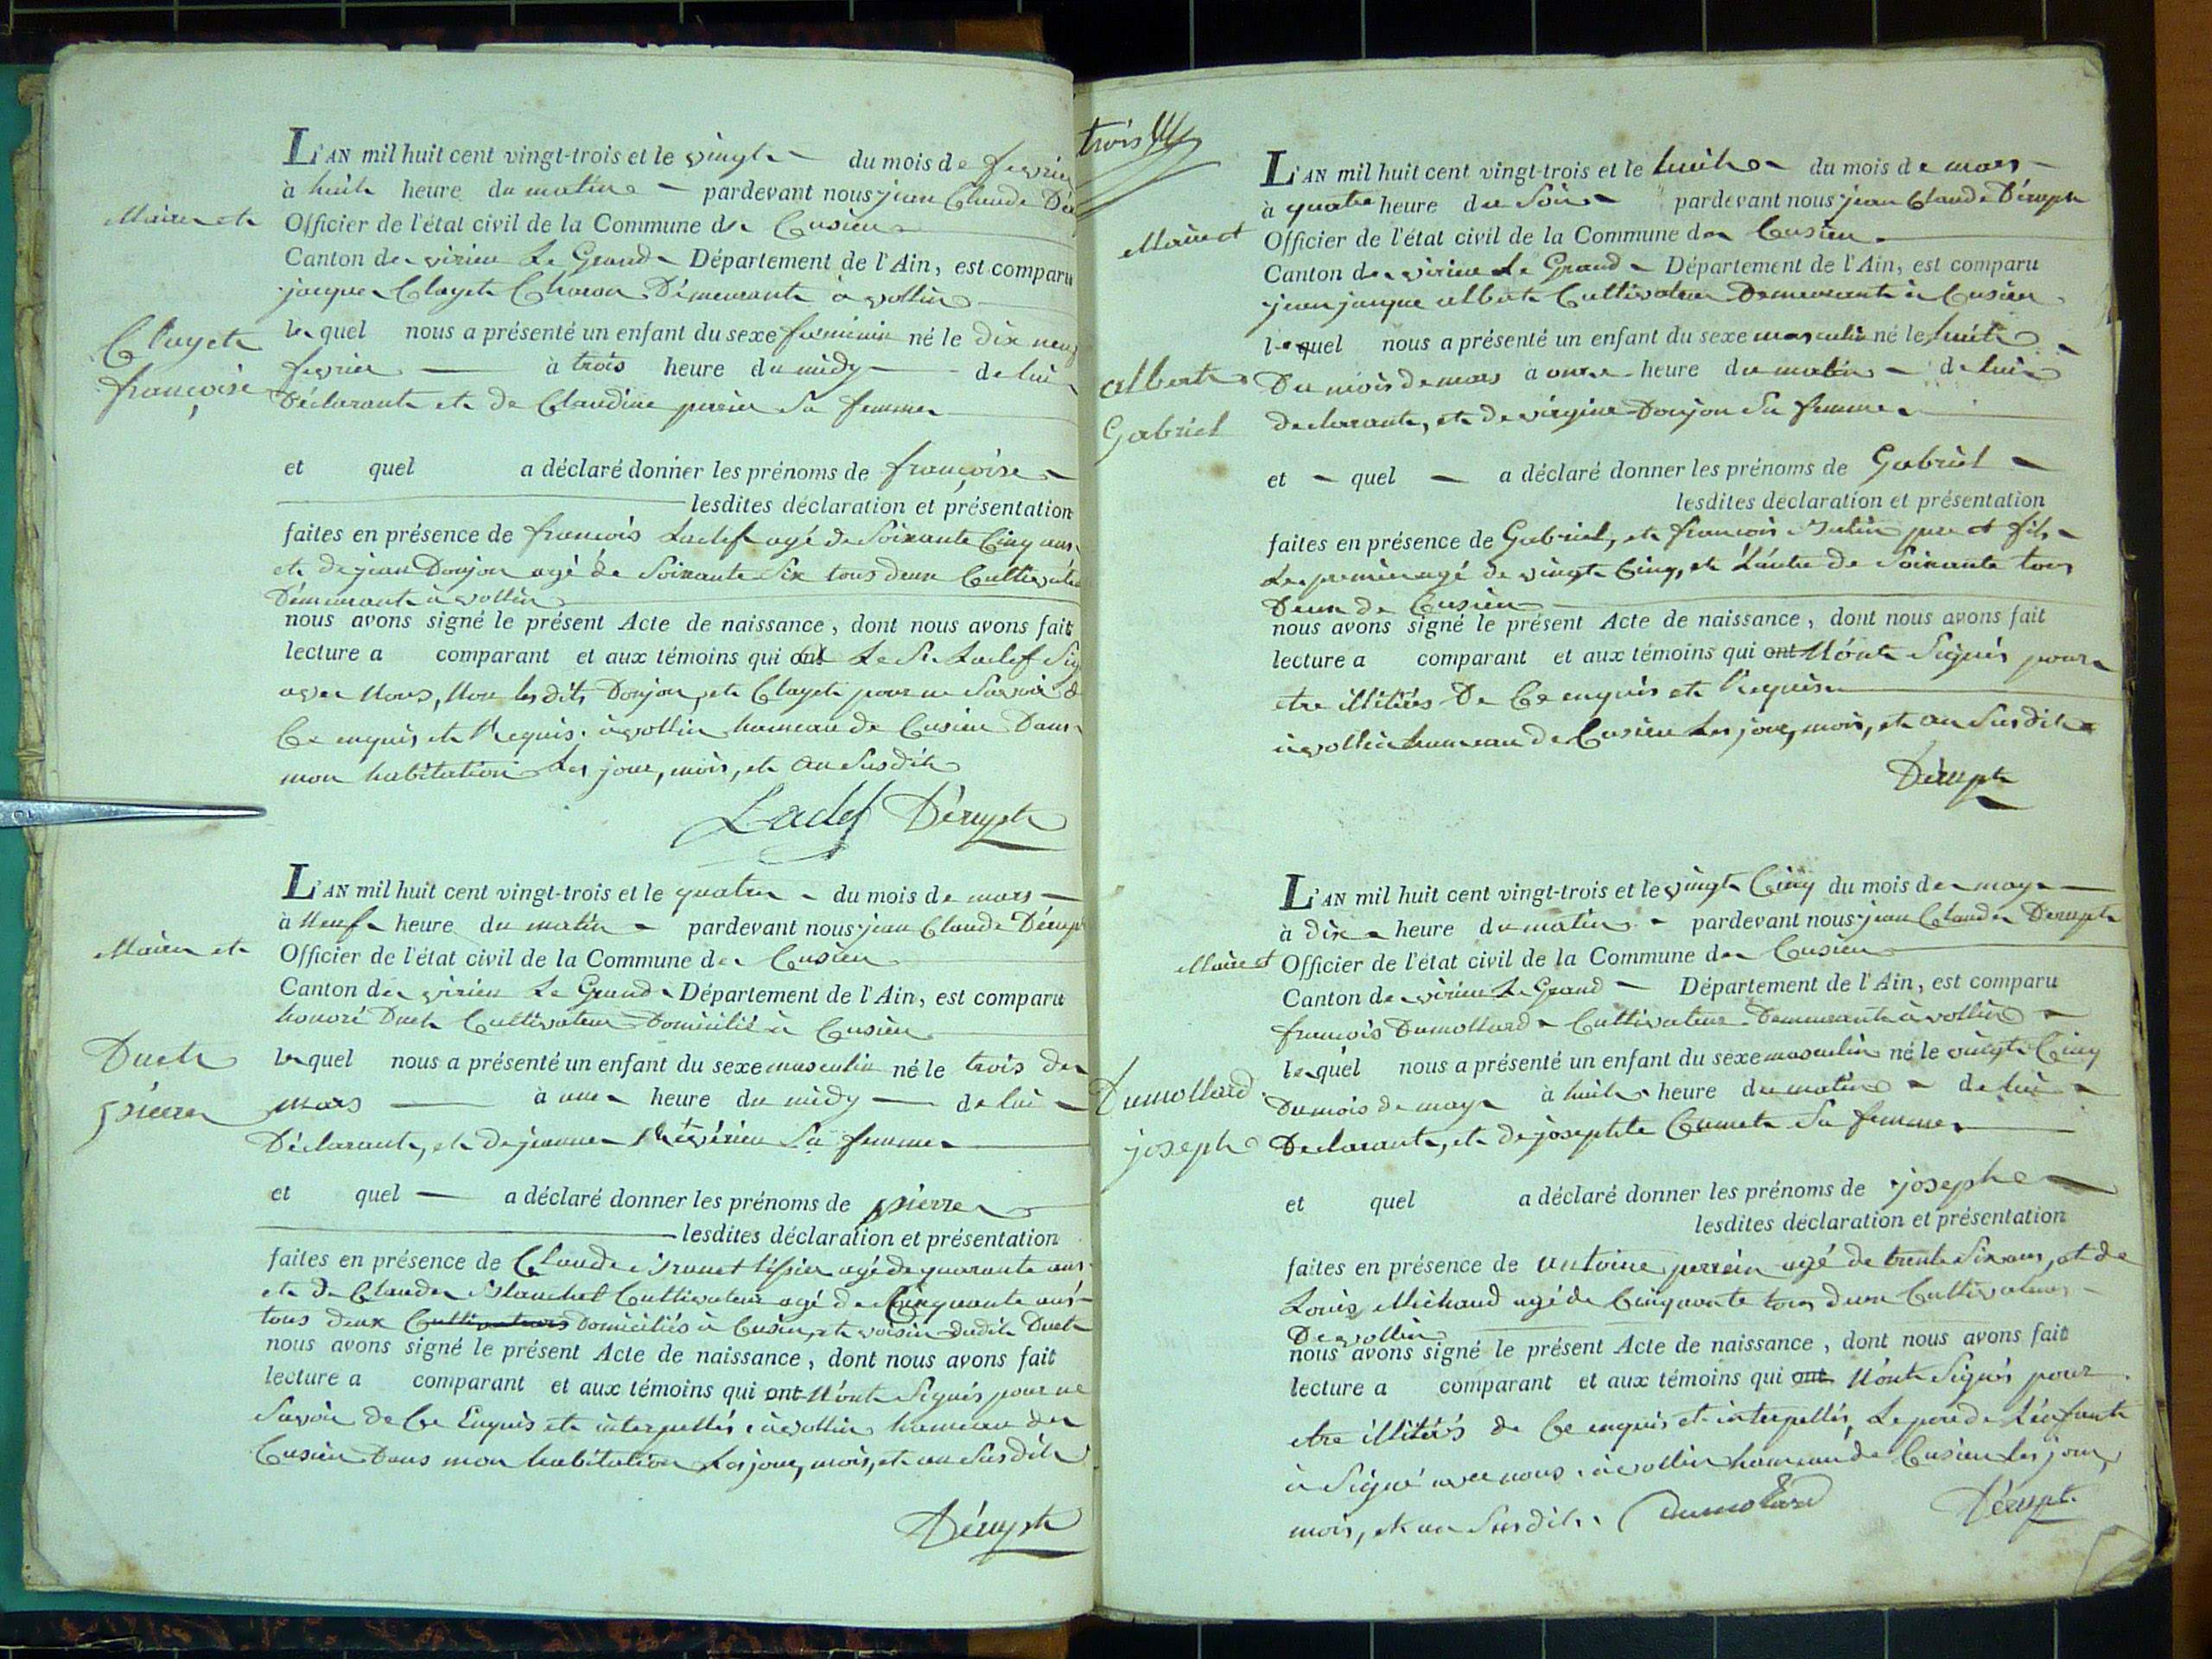 L'AN mil huit cent vingt-trois et le vingt du mois de fevrier
à huit heure du matin pardevant nous jean Claude Dér
Maire et
Officier de l'état civil de la Commune de Cusieu
Canton de virieu Le Grand Département de l'Ain, est comparu
jacque Clayet Charon Démeurant à vollin
Clayet
françoise
lequel nous a présenté un enfant du sexe feminin né le dix neuf
fevrier à trois heure du midy de lui
Déclarant et de Claudine perrin Sa femme
et quel a déclaré donner les prénoms de françoise
lesdites déclaration et présentation
faites en présence de francois Laclef agé de Soixante Cinq ans
et de jean Donjon agé de Soixante Six tous deux Cultivate
Démeurant à vollin
nous avons signé le présent Acte de naissance, dont nous avons fait
lecture a comparant et aux témoins qui ont Le Sr. Laclef Sig
avec Nous, Non les dits Donjon, et Clayet pour ne Savoir d
Ce enquis et Requis. à vollin hameau de Cusieu Dans
mon habitation Les jour, mois, et an Susdit
Laclef Dérupt
L'AN mil huit cent vingt-trois et le quatre du mois de mars
à Neuf heure du matin pardevant nous jean Claude Dérupt
Maire et
Officier de l'état civil de la Commune de Cusieu
Canton de virieu Le Grand Département de l'Ain, est comparu
honoré Duet Cultivateur Domicilié à Cusieu
Duet
pierre
lequel nous a présenté un enfant du sexe masculin né le trois de
mars à une heure du midy de lui
Déclarant, et de jeanne Sa femme
et quel a déclaré donner les prénoms de pierre
lesdites déclaration et présentation
faites en présence de Claude agé de quarante ans
et de Claude Blanchet Cultivateur agé de Cinquante ans
tous deux Cultivateurs Domiciliés à Cusieu, et voisin dudit Duet
nous avons signé le présent Acte de naissance, dont nous avons fait
lecture a comparant et aux témoins qui ont N'ont Signés pour ne
Savoir de Ce Enquis et interpellés. à vollin hameau de
Cusieu Dans mon habitation Les jour, mois, et an Susdit
Dérupt
trois
L'AN mil huit cent vingt-trois et le huit du mois de mars
à quatre heure du Soir pardevant nous jean Claude Dérupt
Maire et
Officier de l'état civil de la Commune de Cusieu
Canton de virieu Le Grand Département de l'Ain, est comparu
jean jacque albert Cultivateur Demeurant à Cusieu
albert
Gabriel
lequel nous a présenté un enfant du sexe masculin né le huit
Du mois de mars à onze heure du matin de lui
declarant, et de virginie Donjon Sa femme
et quel a déclaré donner les prénoms de Gabriel
lesdites déclaration et présentation
faites en présence de Gabriel, et francois pere et fils
Le premier agé de vingt Cinq, et L'autre de Soixante tous
Deux de Cusieu
nous avons signé le présent Acte de naissance, dont nous avons fait
lecture a comparant et aux témoins qui ont N'ont Signés pour
etre illitérés De Ce enquis et Requis
à vollin hameau de Cusieu Les jour, mois, et an Susdit
Dérupt
L'AN mil huit cent vingt-trois et le vingt Cinq du mois de may
à dix heure du matin pardevant nous jean Claude Derupt
Maire et
Officier de l'état civil de la Commune de Cusieu
Canton de virieu Le Grand Département de l'Ain, est comparu
francois Dumollard Cultivateur Demeurant à vollin
Dumollard
joseph
lequel nous a présenté un enfant du sexe masculin né le vingt Cinq
Du mois de may à huit heure du matin de lui
Declarant, et de josephte Sa femme
et quel a déclaré donner les prénoms de joseph
lesdites déclaration et présentation
faites en présence de antoine perrin agé de trente Six ans, et de
Louis Michaud agé de Cinquante tous deux Cultivateurs
De vollin
nous avons signé le présent Acte de naissance, dont nous avons fait
lecture a comparant et aux témoins qui ont N'ont Signés pour
etre illitérés de Ce enquis et interpellés, Le pere de L'enfant
à Signé avec nous. à vollin hameau de Cusieu Les jour,
mois, et an Susdit. dumolard Dérupt